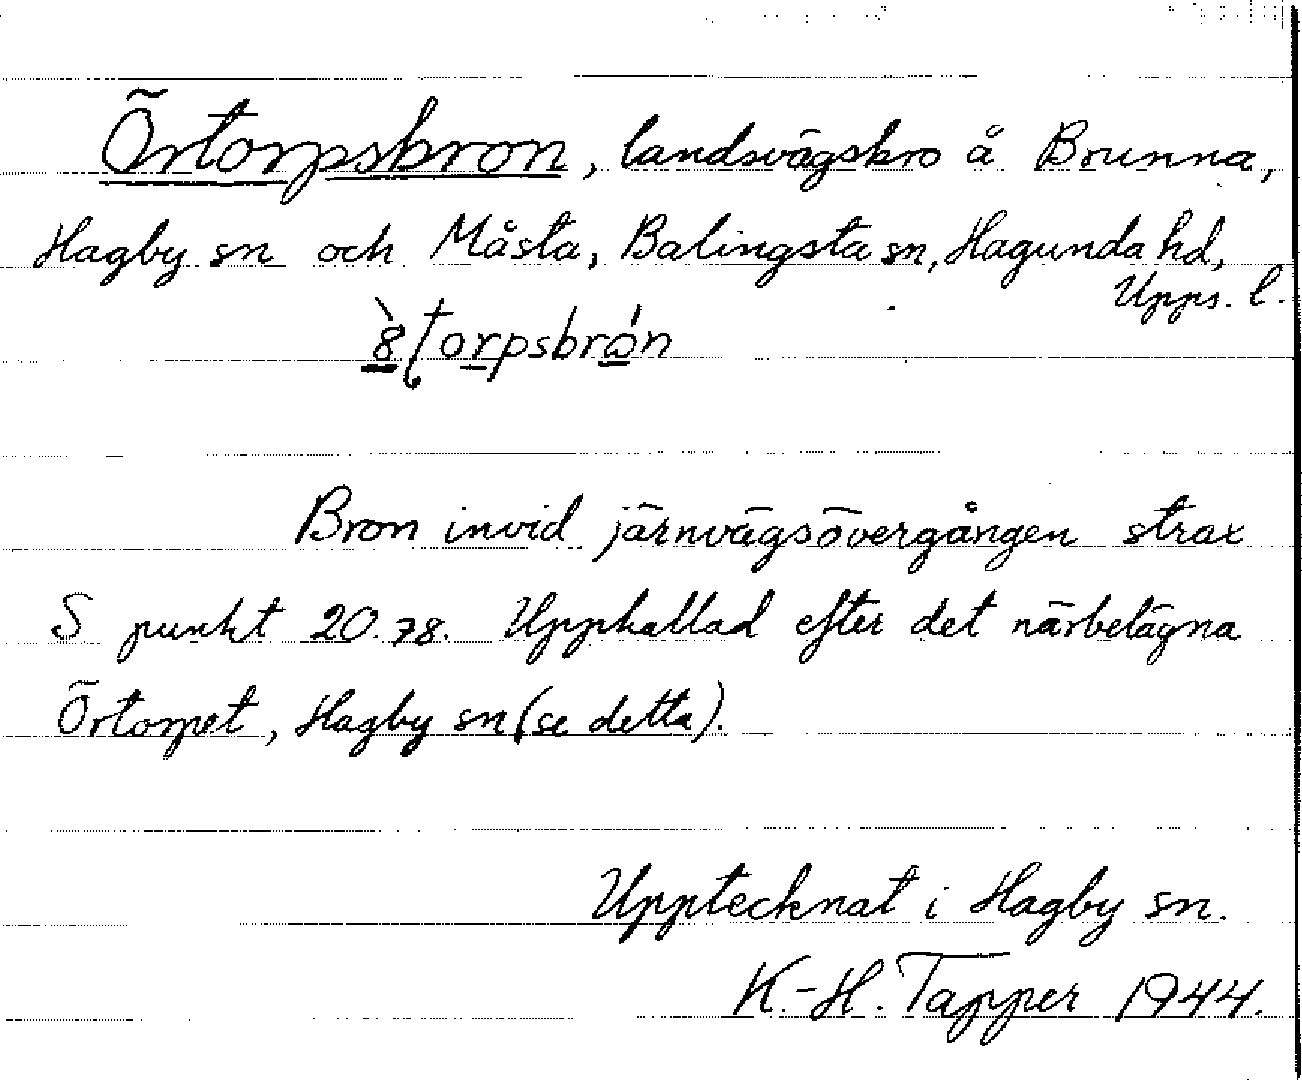 Örtorpsbron, landsvägsbro å Brunna,
Hagby sn och Måsta, Balingsta sn, Hagunda hd,
Upps. l.
Bron invid järnvägsövergången strax
S punkt 20.78. Uppkallad efter det närbelägna
Örtorpet, Hagby sn (se detta).
Upptecknat i Hagby sn.
K.-H. Tapper 1944.